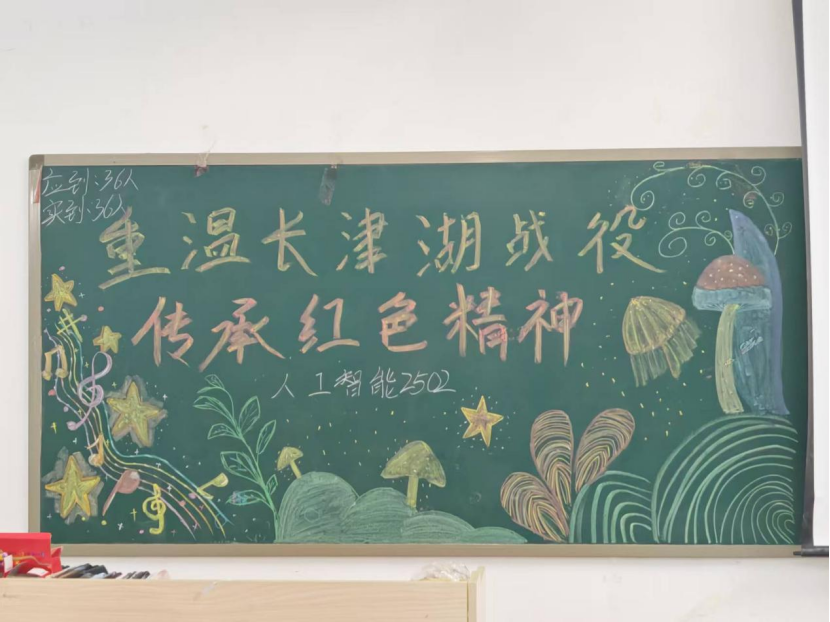 应到:36人
实到:36人
重温长津湖战役
传承红色精神
人工智能2502